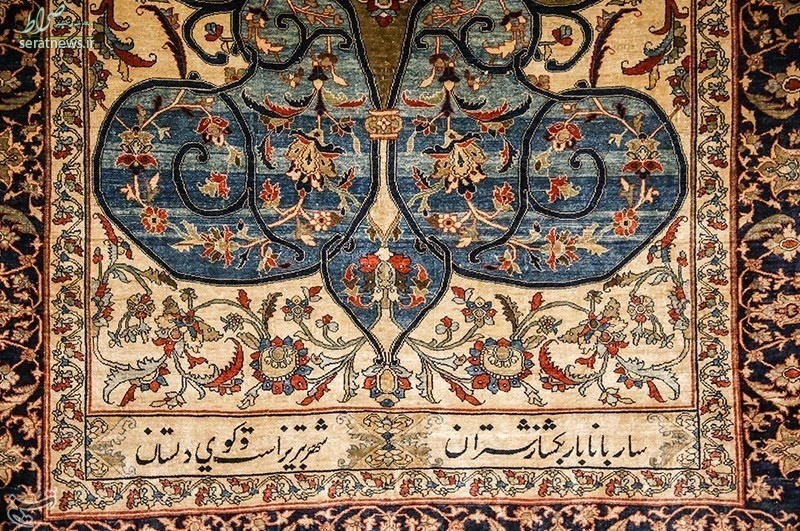 صراط
seratnews.ir
ساربانا بار بگشا ز شتران شهر تبریز است و کوی دلستان